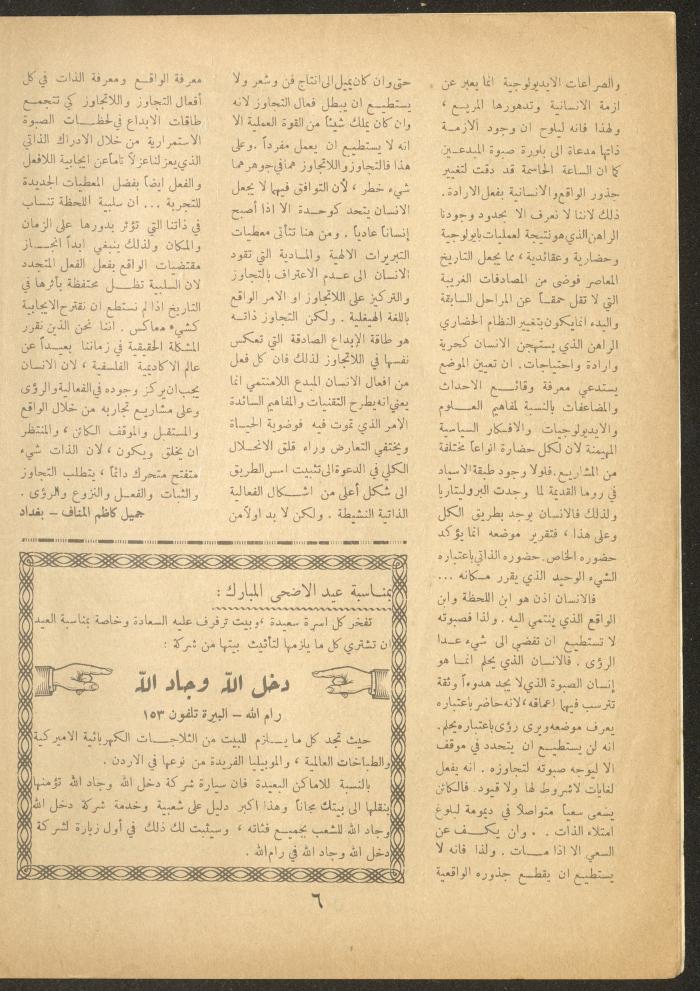 والصراعات الايديولوجية انما يعبر عن
ازمة الانسانية وتدهورها المريع ،
ولهذا فانه ليلوح ان وجود الأزمة
ذاتها مدعاة الى بلورة صبوة المبدعين
كما ان الساعة الحاسمة قد دقت لتغيير
جذور الواقع والانسانية بفعل الارادة .
ذلك لاننا لا نعرف الا بحدود وجودنا
الراهن الذي هو نتيجة لعمليات بايولوجية
وحضارية وعقائدية ، مما يجعل التاريخ
المعاصر فوضى من المصادفات الغريبة
التي لا تقل حمقاً عن المراحل السابقة
والبدء انما يكون بتغيير النظام الحضاري
الراهن الذي يستهجن الانسان كحرية
وارادة واحتياجات . ان تعيين الموضع
يستدعي معرفة وقائع الاحداث
والمضاعفات بالنسبة لمفاهيم العلوم
والايديولوجيات والافكار السياسية
المهيمنة لان لكل حضارة انواعاً مختلفة
من المشاريع . فلولا وجود طبقة الاسياد
في روما القديمة لما وجدت البروليتاريا
ولذلك فالانسان يوجد بطريق الكل
وعلى هذا ، فتقرير موضعه انما يؤكد
حضوره الخاص . حضوره الذاتي باعتباره
الشيء الوحيد الذي يقرر مكانه ...
فالانسان اذن هو ابن اللحظة وابن
الواقع الذي ينتمي اليه . ولذا فصبوته
لا تستطيع ان تفضي الى شيء عدا
الرؤى . فالانسان الذي يحلم انما هو
إنسان الصبوة الذي لا يجد هدوءاً وثقة
تترسب فيها اعماقه ، لانه حاضر باعتباره
يعرف موضعه ويرى رؤى باعتباره يحلم .
انه لن يستطيع ان يتحدد في موقف
الا ليوجه صبوته لتجاوزه . انه يفعل
لغايات لا شروط لها ولا قيود . فالكائن
يسعى سعياً متواصلاً في ديمومة لبلوغ
امتلاء الذات . . وان يكف عن
السعي الا اذا مات . ولذا فانه لا
يستطيع ان يقطع جذوره الواقعية
حتى وان كان يميل الى انتاج فن وشعر ولا
يستطيع ان يبطل فعال التجاوز لانه
وان كان يملك شيئاً من القوة العملية الا
انه لا يستطيع ان يعمل مفرداً . وعلى
هذا فالتجاوز واللاتجاوز هما في جوهرهما
شيء خطر ، لأن التوافق فيهما لا يجعل
الانسان يتحد كوحدة الا اذا أصبح
إنساناً عادياً . ومن هنا تتأتى معطيات
التبريرات الالهية والمادية التي تقود
الانسان الى عدم الاعتراف بالتجاوز
والتركيز على اللاتجاوز او الامر الواقع
باللغة الهيغلية . ولكن التجاوز ذاته
هو طاقة الإبداع الصادقة التي تعكس
نفسها في اللاتجاوز لذلك فان كل فعل
من افعال الانسان المبدع اللامنتمي انما
يعني انه يطرح التقنيات والمفاهيم السائدة
الأمر الذي تموت فيه فوضوية الحياة
ويختفي التعارض وراء قلق الانحلال
الكلي في الدعوة الى تثبيت اسس الطريق
الى شكل أعلى من اشكال الفعالية
الذاتية النشيطة . ولكن لا بد اولاً من
معرفة الواقع ومعرفة الذات في كل
أفعال التجاوز واللاتجاوز كي تتجمع
طاقات الابداع في لحظات الصبوة
الاستمرارية من خلال الادراك الذاتي
الذي يعزلنا عزلاً تاماً عن ايجابية اللافعل
والفعل ايضاً بفضل المعطيات الجديدة
للتجربة ... ان سلبية اللحظة تنساب
في ذاتنا التي تؤثر بدورها على الزمان
والمكان ولذلك ينبغي ابداً انجاز
مقتضيات الواقع بفعل الفعل المتجدد
لان السلبية تظل محتفظة بآثرها في
التاريخ اذا لم نستطع ان نقترح الايجابية
كشيء معاكس . اننا نحن الذين نقرر
المشكلة الحقيقية في زماننا بعيداً عن
عالم الاكاديمية الفلسفية ، لان الانسان
يجب ان يركز وجوده في الفعالية والرؤى
وعلى مشاريع تجاربه من خلال الواقع
والمستقبل والموقف الكائن ، والمنتظر
ان يخلق ويكون ، لان الذات شيء
متفتح متحرك دائماً ، يتطلب التجاوز
والثبات والفعل والنزوع والرؤى .
جميل كاظم المناف - بغداد
بمناسبة عيد الاضحى المبارك :
تفخر كل اسرة سعيدة ، وبيت ترفرف عليه السعادة وخاصة بمناسبة العيد
ان تشتري كل ما يلزمها لتأثيث بيتها من شركة :
دخل الله وجاد الله
رام الله - البيرة تلفون ١٥٣
حيث تجد كل ما يلزم للبيت من الثلاجات الكهربائية الاميركية
والطباخات العالمية ، والموبيليا الفريدة من نوعها في الاردن .
بالنسبة للاماكن البعيدة فان سيارة شركة دخل الله وجاد الله تؤمنها
بنقلها الى بيتك مجاناً وهذا اكبر دليل على شعبية وخدمة شركة دخل الله
وجاد الله للشعب بجميع فئاته ، وسيثبت لك ذلك في أول زيارة لشركة
دخل الله وجاد الله في رام الله .
٦